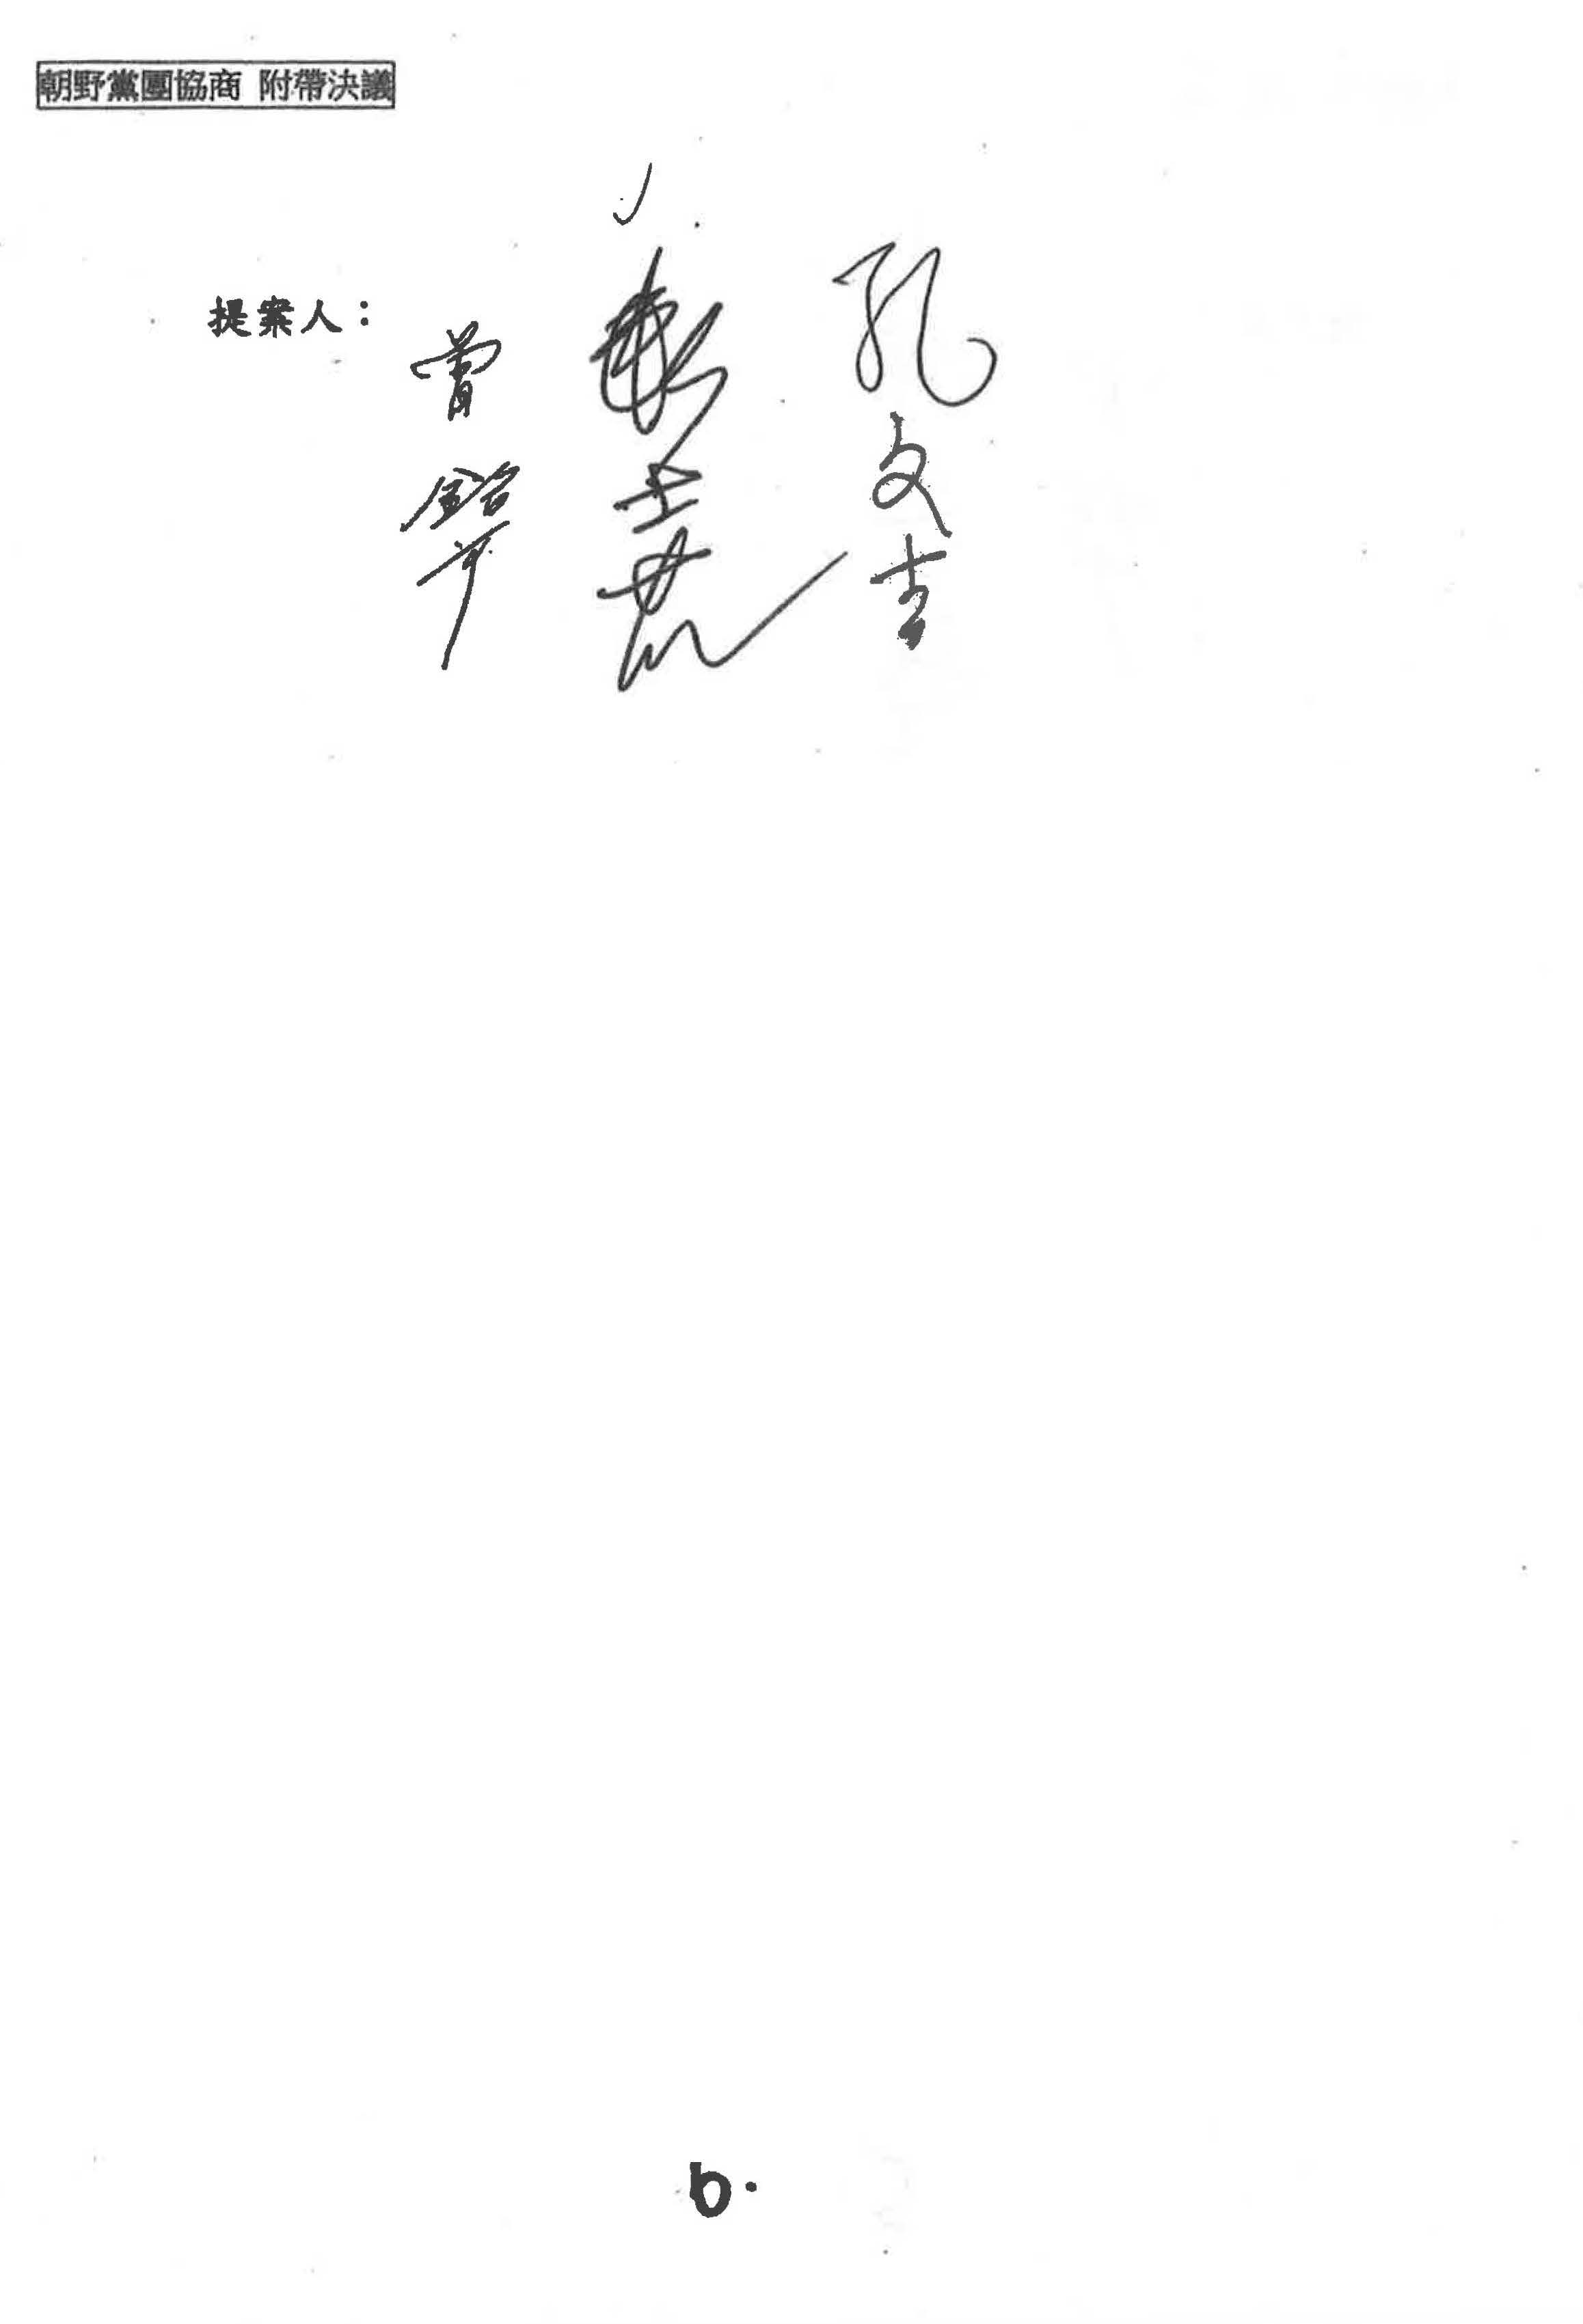 朝野黨團協商 附帶決議
提案人：
曾銘宗
孔文吉
6.